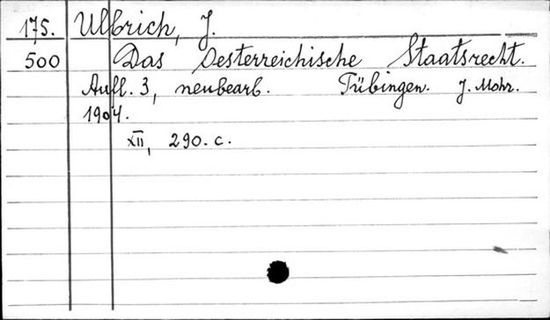 175. Ulbrich, J.
500 Das Oesterreichische Staatsrecht.
Aufl. 3, neubearb. Tübingen. J. Mohr.
1904.
XII, 290. c.